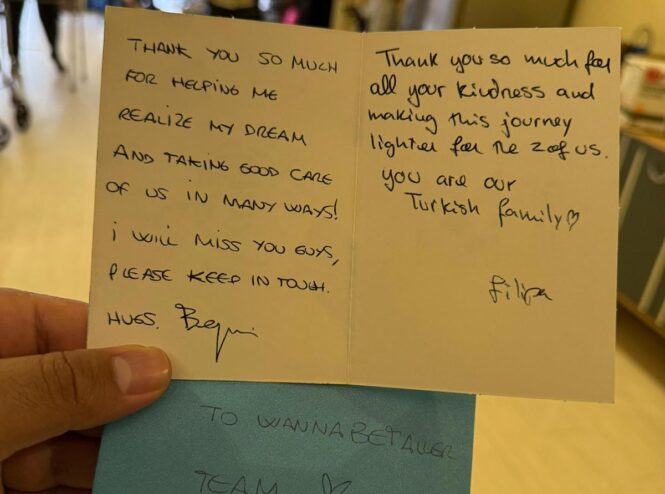 THANK YOU SO MUCH
FOR HELPING ME
REALIZE MY DREAM
AND TAKING GOOD CARE
OF US IN MANY WAYS!
i WILL MISS YOU GUYS,
PLEASE KEEP IN TOUCH.
HUGS.
Thank you so much for
all your kindness and
making this journey
lighter for the 2 of us.
you are our
Turkish family♡
filipa
TO WANNABETALLER
TEAM ♡